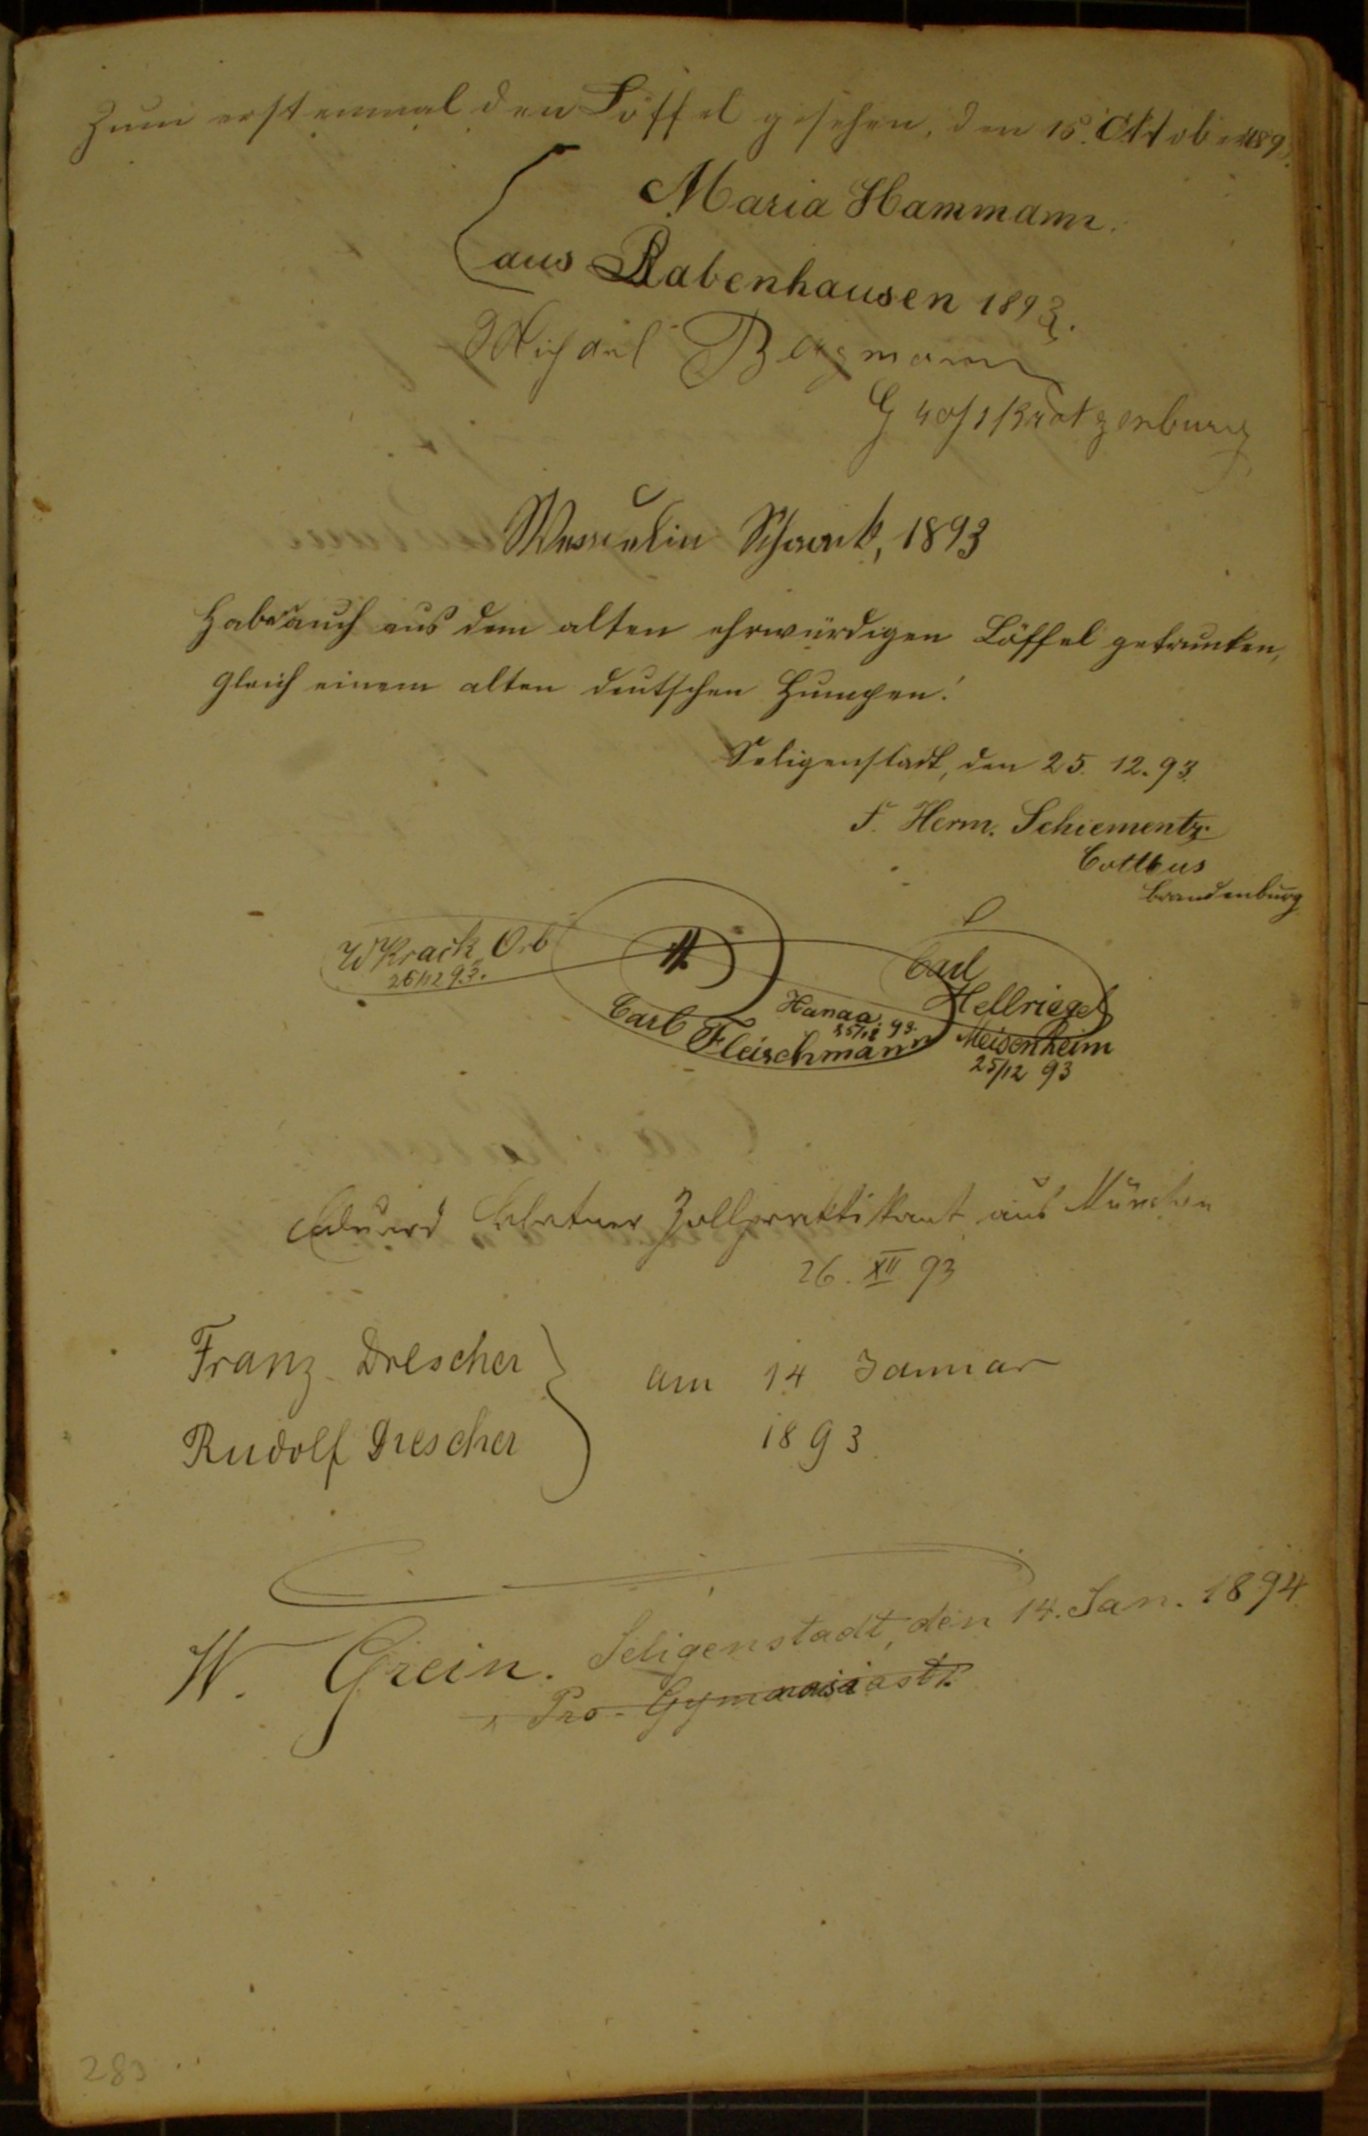 Zum erstenmal den Löffel gesehen, den 15. Oktober 1893.
Maria Hammann.
aus Babenhausen 1893.
Michael Bergmann
Großkrotzenburg
Schwank, 1893
Habe auch aus dem alten ehrwürdigen Löffel getrunken,
gleich einem alten deutschen Humpen!
Seligenstadt, den 25. 12. 93.
F. Herm. Schiementz.
Cottbus
Brandenburg
W Krack Orb
26/12 93.
Carl
Hellriegel
Meisenheim
25/12 93
Carl Fleischmann
Hanau
25/12 93.
Eduard Zollpraktikant aus München
26. XII 93
Franz Drescher
Rudolf Drescher
am 14 Januar
1893
W. Grein. Seligenstadt, den 14. Jan. 1894.
Pro-Gymnasiast.
283